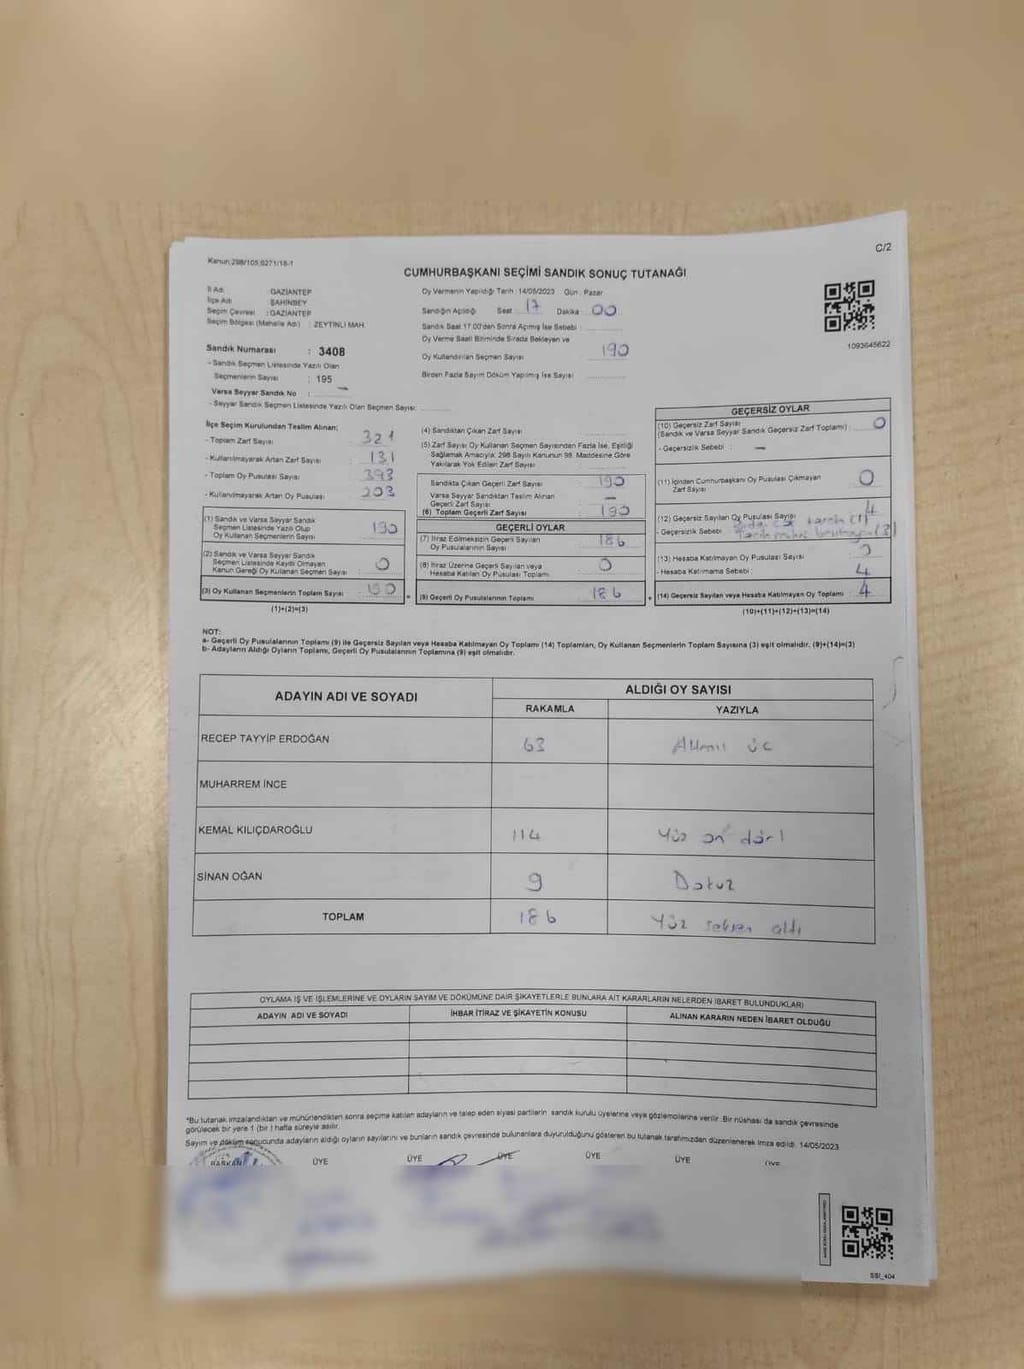 C/2
Kanun:298/105,6271/18-1
CUMHURBAŞKANI SEÇİMİ SANDIK SONUÇ TUTANAĞI
İl Adı : GAZİANTEP
İlçe Adı : ŞAHİNBEY
Seçim Çevresi : GAZİANTEP
Seçim Bölgesi (Mahalle Adı) : ZEYTİNLİ MAH.
Sandık Numarası : 3408
- Sandık Seçmen Listesinde Yazılı Olan
Seçmenlerin Sayısı : 195
Varsa Seyyar Sandık No : —
- Seyyar Sandık Seçmen Listesinde Yazılı Olan Seçmen Sayısı:
Oy Vermenin Yapıldığı Tarih : 14/05/2023 Gün : Pazar
Sandığın Açıldığı Saat 17 Dakika 00
Sandık Saat 17.00'den Sonra Açılmış İse Sebebi :
Oy Verme Saati Bitiminde Sırada Bekleyen ve
Oy Kullandırılan Seçmen Sayısı : 190
Birden Fazla Sayım Döküm Yapılmış İse Sayısı :
1093645622
İlçe Seçim Kurulundan Teslim Alınan;
- Toplam Zarf Sayısı : 321
- Kullanılmayarak Artan Zarf Sayısı : 131
- Toplam Oy Pusulası Sayısı : 393
- Kullanılmayarak Artan Oy Pusulası : 203
(1) Sandık ve Varsa Seyyar Sandık
Seçmen Listesinde Yazılı Olup
Oy Kullanan Seçmenlerin Sayısı : 190
(2) Sandık ve Varsa Seyyar Sandık
Seçmen Listesinde Kayıtlı Olmayan
Kanun Gereği Oy Kullanan Seçmen Sayısı : 0
(3) Oy Kullanan Seçmenlerin Toplam Sayısı : 190
(1)+(2)=(3)
(4) Sandıktan Çıkan Zarf Sayısı :
(5) Zarf Sayısı Oy Kullanan Seçmen Sayısından Fazla İse, Eşitliği
Sağlamak Amacıyla; 298 Sayılı Kanunun 98. Maddesine Göre
Yakılarak Yok Edilen Zarf Sayısı :
Sandıkta Çıkan Geçerli Zarf Sayısı : 190
Varsa Seyyar Sandıktan Teslim Alınan
Geçerli Zarf Sayısı : —
(6) Toplam Geçerli Zarf Sayısı : 190
GEÇERLİ OYLAR
(7) İtiraz Edilmeksizin Geçerli Sayılan
Oy Pusulalarının Sayısı : 186
(8) İtiraz Üzerine Geçerli Sayılan veya
Hesaba Katılan Oy Pusulası Toplamı : 0
(9) Geçerli Oy Pusulalarının Toplamı : 186
GEÇERSİZ OYLAR
(10) Geçersiz Zarf Sayısı
(Sandık ve Varsa Seyyar Sandık Geçersiz Zarf Toplamı) : 0
- Geçersizlik Sebebi : —
(11) İçinden Cumhurbaşkanı Oy Pusulası Çıkmayan
Zarf Sayısı : 0
(12) Geçersiz Sayılan Oy Pusulası Sayısı : 4
- Geçersizlik Sebebi :
(13) Hesaba Katılmayan Oy Pusulası Sayısı : 0
- Hesaba Katılmama Sebebi : 4
(14) Geçersiz Sayılan veya Hesaba Katılmayan Oy Toplamı : 4
(10)+(11)+(12)+(13)=(14)
NOT:
a- Geçerli Oy Pusulalarının Toplamı (9) ile Geçersiz Sayılan veya Hesaba Katılmayan Oy Toplamı (14) Toplamları, Oy Kullanan Seçmenlerin Toplam Sayısına (3) eşit olmalıdır. (9)+(14)=(3)
b- Adayların Aldığı Oyların Toplamı, Geçerli Oy Pusulalarının Toplamına (9) eşit olmalıdır.
ADAYIN ADI VE SOYADI ALDIĞI OY SAYISI
RAKAMLA YAZIYLA
RECEP TAYYİP ERDOĞAN 63 Altmış üç
MUHARREM İNCE
KEMAL KILIÇDAROĞLU 114 Yüz on dört
SİNAN OĞAN 9 Dokuz
TOPLAM 186 Yüz seksen altı
OYLAMA İŞ VE İŞLEMLERİNE VE OYLARIN SAYIM VE DÖKÜMÜNE DAİR ŞİKAYETLERLE BUNLARA AİT KARARLARIN NELERDEN İBARET BULUNDUKLARI
ADAYIN ADI VE SOYADI İHBAR İTİRAZ VE ŞİKAYETİN KONUSU ALINAN KARARIN NEDEN İBARET OLDUĞU
*Bu tutanak imzalandıktan ve mühürlendikten sonra seçime katılan adayların ve talep eden siyasi partilerin sandık kurulu üyelerine veya gözlemcilerine verilir. Bir nüshası da sandık çevresinde
görülecek bir yere 1 (bir) hafta süreyle asılır.
Sayım ve döküm sonucunda adayların aldığı oyların sayılarını ve bunların sandık çevresinde bulunanlara duyurulduğunu gösteren bu tutanak tarafımızdan düzenlenerek imza edildi. 14/05/2023
BAŞKAN ÜYE ÜYE ÜYE ÜYE ÜYE ÜYE
SSI_404